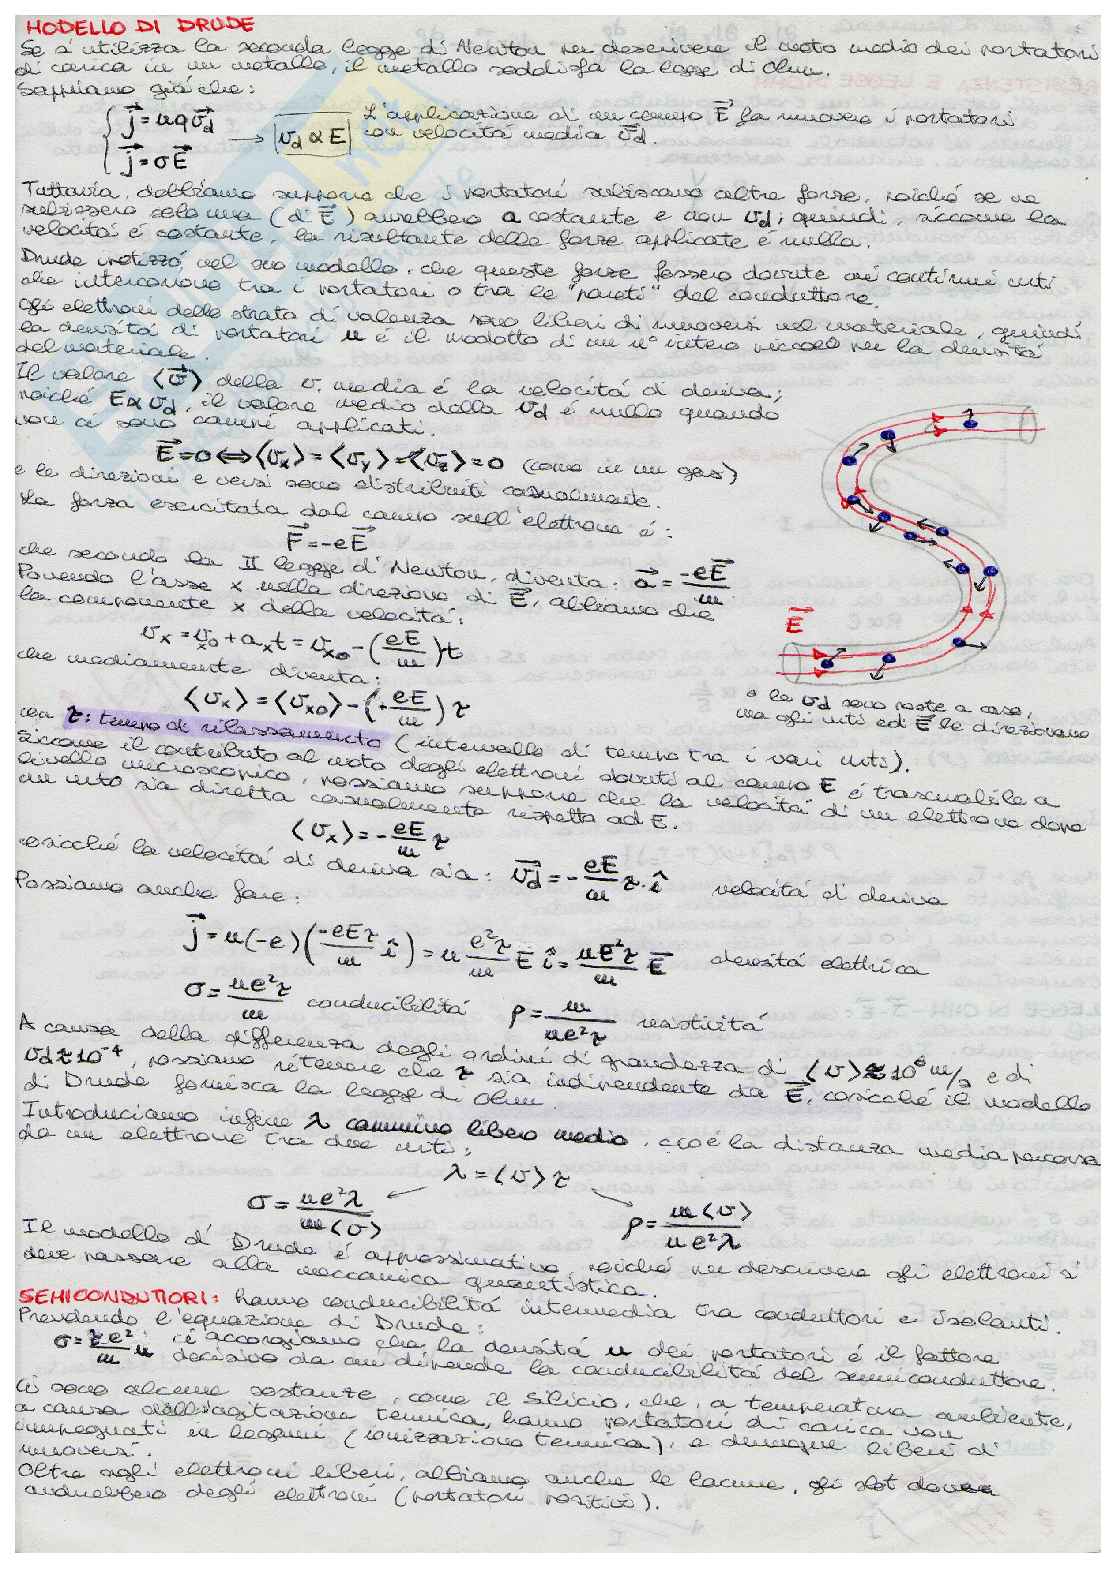 MODELLO DI DRUDE
Se si utilizza la seconda legge di Newton per descrivere il moto medio dei portatori
di carica in un metallo, il metallo soddisfa la legge di Ohm.
Sappiamo già che:
{ j⃗ = nqv⃗d
j⃗ = σE⃗ → vd ∝ E
L'applicazione di un campo E⃗ fa muovere i portatori
con velocità media v⃗d.
Tuttavia, dobbiamo supporre che i portatori subiscano altre forze, poiché se ne
subissero solo una (di E⃗) avrebbero a costante e non vd; quindi, siccome la
velocità è costante, la risultante delle forze applicate è nulla.
Drude ipotizzò, nel suo modello, che queste forze fossero dovute ai continui urti
che intercorrono tra i portatori o tra le "pareti" del conduttore.
Gli elettroni dello strato di valenza sono liberi di muoversi nel materiale, quindi
la densità di portatori n è il prodotto di un n° intero piccolo per la densità
del materiale.
Il valore ⟨v⃗⟩ della v. media è la velocità di deriva;
poiché E∝vd, il valore medio della vd è nullo quando
non ci sono campi applicati.
E⃗=0 ⟺ ⟨vx⟩=⟨vy⟩=⟨vz⟩=0 (come in un gas)
e le direzioni e versi sono distribuiti casualmente.
La forza esercitata dal campo sull'elettrone è:
F⃗ = -eE⃗
che secondo la II legge di Newton, diventa: a⃗ = -eE⃗/m
Ponendo l'asse x nella direzione di E⃗, abbiamo che
la componente x della velocità:
vx = vx0 + axt = vx0 - (eE/m)t
che mediamente diventa:
⟨vx⟩ = ⟨vx0⟩ - (+eE/m)τ
E⃗
con τ: tempo di rilassamento (intervallo di tempo tra i vari urti).
e le vd sono poste a caso,
ma gli urti ed E⃗ le direzionano
Siccome il contributo al moto degli elettroni dovuti al campo E è trascurabile a
livello microscopico, possiamo supporre che la velocità di un elettrone dopo
un urto sia diretta casualmente rispetto ad E.
⟨vx⟩ = -eE/m τ
cosicché la velocità di deriva sia: v⃗d = -eE/m τ·î velocità di deriva
Possiamo anche fare:
j⃗ = n(-e)(-eEτ/m î) = n e²τ/m E î = nE²τ/m E⃗ densità elettrica
σ = ne²τ/m conducibilità ρ = m/ne²τ resistività
A causa della differenza degli ordini di grandezza di ⟨v⟩≈10⁶ m/s e di
vd≈10⁻⁴, possiamo ritenere che τ sia indipendente da E⃗, cosicché il modello
di Drude fornisca la legge di Ohm.
Introduciamo infine λ cammino libero medio, cioè la distanza media percorsa
da un elettrone tra due urti:
λ = ⟨v⟩τ
σ = ne²λ/m⟨v⟩ ρ = m⟨v⟩/ne²λ
Il modello di Drude è approssimativo, poiché per descrivere gli elettroni si
deve passare alla meccanica quantistica.
SEMICONDUTTORI: hanno conducibilità intermedia tra conduttori e isolanti.
Prendendo l'equazione di Drude:
σ = τe²/m n ; ci accorgiamo che la densità n dei portatori è il fattore
decisivo da cui dipende la conducibilità del semiconduttore.
Ci sono alcune sostanze, come il Silicio, che, a temperatura ambiente,
a causa dell'agitazione termica, hanno portatori di carica non
impegnati in legami (ionizzazione termica), e dunque liberi di
muoversi.
Oltre agli elettroni liberi, abbiamo anche le lacune, gli slot dove
andrebbero degli elettroni (portatori positivi).